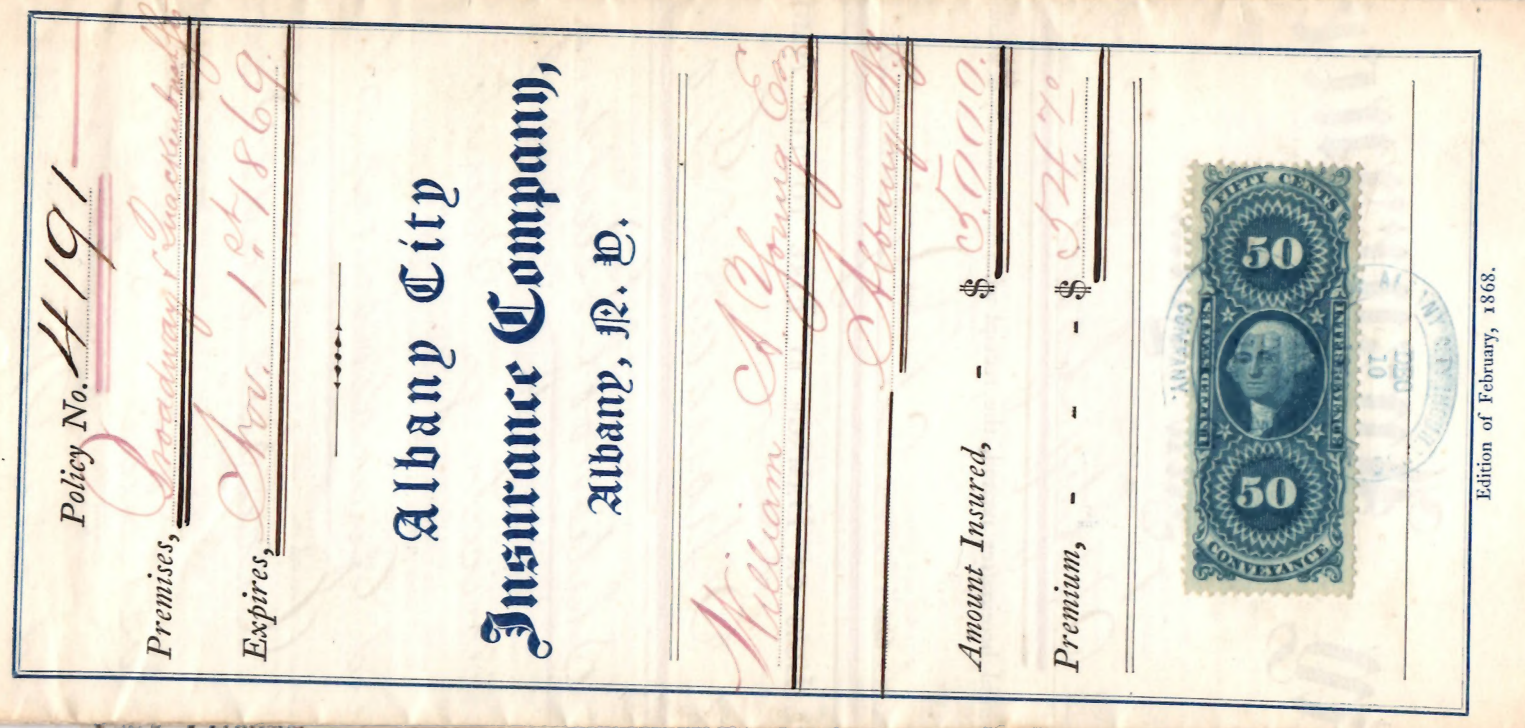 Policy No. 4191
Premises, Broadway & Quackenbush
Expires, Nov. 1st 1869
Albany City
Insurance Company,
Albany, N. Y.
William A Young Esq
Albany N.Y
Amount Insured, - $ 5,000.
Premium, - - - $ 54.70
FIFTY CENTS
50
UNITED STATES
INTER. REVENUE
50
CONVEYANCE
COMPANY.
DEC
10
Edition of February, 1868.